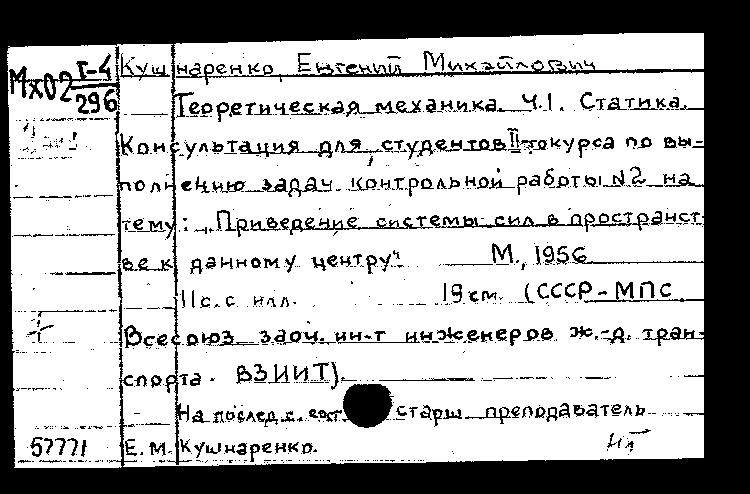 Мх02 Т-4/296
Кушнаренко, Евгений Михайлович
Теоретическая механика. Ч.1. Статика.
Консультация для студентов II-го курса по вы-
полнению задач контрольной работы №2 на
тему: „Приведение системы сил в пространст-
ве к данному центру". М., 1956
11с. с илл. 19 см. (СССР-МПС.
Всесоюз. заоч. ин-т инженеров ж.-д. тран-
спорта. ВЗИИТ).
На послед. с. сост. старш. преподаватель
57771 Е.М. Кушнаренко.